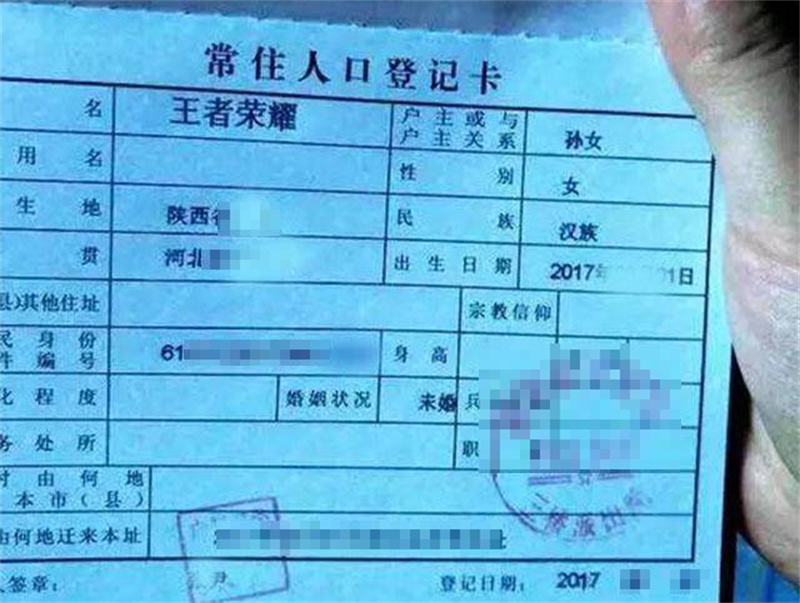 常住人口登记卡
名 王者荣耀 户主或与户主关系 孙女
用名 性别 女
生地 陕西省 民族 汉族
贯 河北 出生日期 2017年 01日
县)其他住址 宗教信仰
民身份 61 身高
件编号
化程度 婚姻状况 未婚 兵
务处所 职
时由何地
本市(县)
由何地迁来本址
人签章: 登记日期: 2017